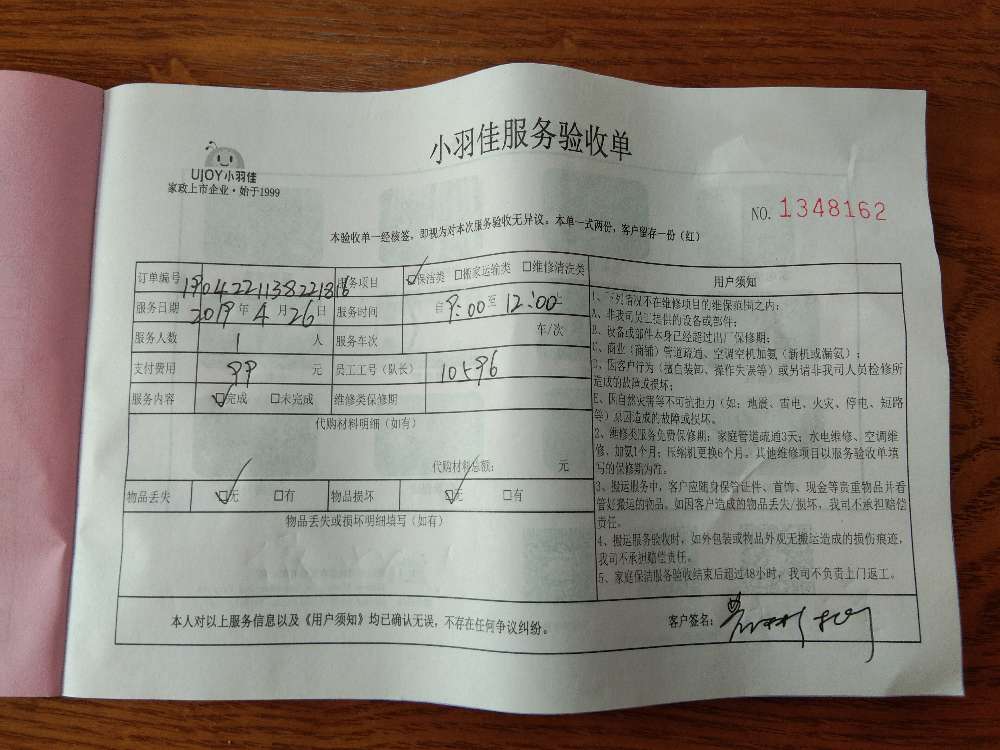 小羽佳服务验收单
UJOY小羽佳
家政上市企业·始于1999
NO. 1348162
本验收单一经核签，即视为对本次服务验收无异议。本单一式两份，客户留存一份（红）
订单编号 服务项目 保洁类 搬家运输类 维修清洗类
服务日期 2019年4月26日 服务时间 自9:00至12:00止
服务人数 1 人 服务车次 车/次
支付费用 99 元 员工工号（队长） 10596
服务内容 完成 未完成 维修类保修期
代购材料明细（如有）
代购材料总额： 元
物品丢失 无 有 物品损坏 无 有
物品丢失或损坏明细填写（如有）
用户须知
1、下列情况不在维修项目的维保范围之内：
A、非我司员工提供的设备或部件；
B、设备或部件本身已经超过出厂保修期；
C、商业（商铺）管道疏通、空调空机加氨（新机或漏氨）；
D、因客户行为（擅自装卸、操作失误等）或另请非我司人员检修所
造成的故障或损坏；
E、因自然灾害等不可抗拒力（如：地震、雷电、火灾、停电、短路
等）原因造成的故障或损坏。
2、维修类服务免费保修期：家庭管道疏通3天；水电维修、空调维
修、加氨1个月；压缩机更换6个月。其他维修项目以服务验收单填
写的保修期为准。
3、搬运服务中，客户应随身保管证件、首饰、现金等贵重物品并看
管好搬运的物品。如因客户造成的物品丢失/损坏，我司不承担赔偿
责任。
4、搬运服务验收时，如外包装或物品外观无搬运造成的损伤痕迹，
我司不承担赔偿责任。
5、家庭保洁服务验收结束后超过48小时，我司不负责上门返工。
本人对以上服务信息以及《用户须知》均已确认无误，不存在任何争议纠纷。 客户签名：